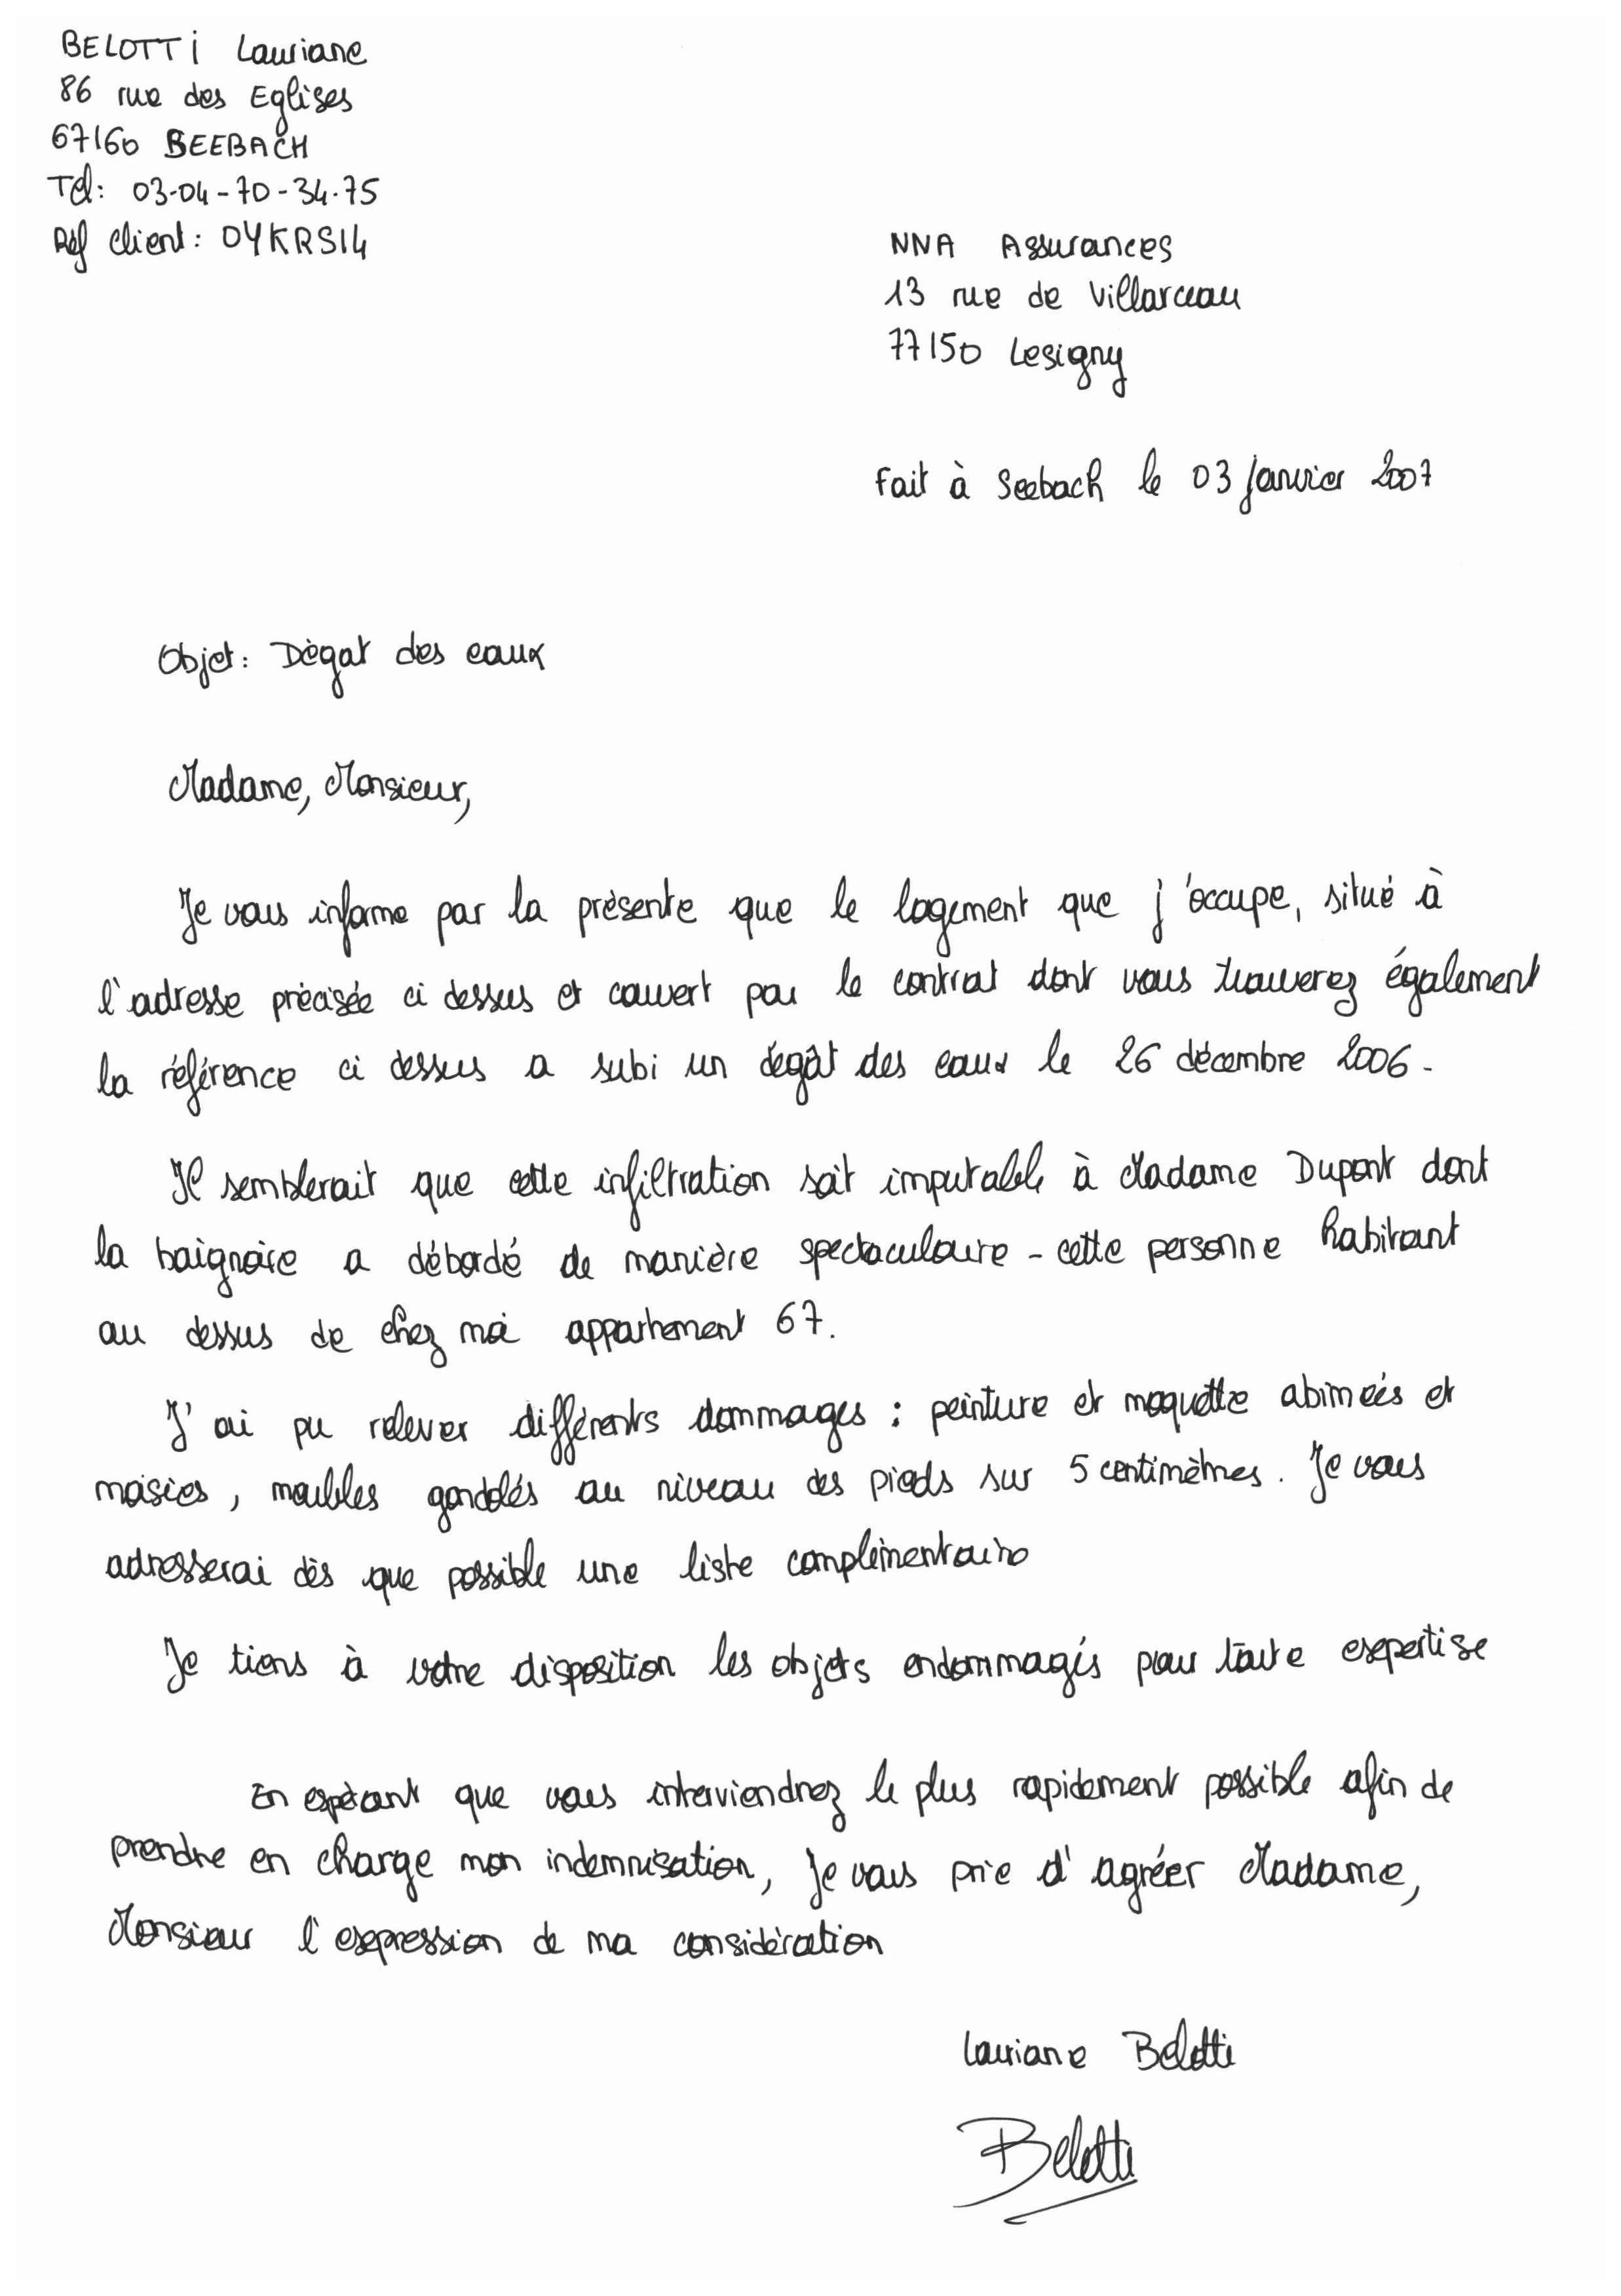 BELOTTI Lauriane
86 rue des Eglises
67160 SEEBACH
Tel: 03-04-70-34-75
Réf client: OYKRS14
NNA Assurances
13 rue de Villarceau
77150 Lesigny
Fait à Seebach le 03 janvier 2007
Objet: Dègat des eaux
Madame, Monsieur,
Je vous informe par la présente que le logement que j'occupe, situé à
l'adresse précisée ci dessus et couvert par le contrat dont vous trouverez également
la référence ci dessus a subi un dégât des eaux le 26 décembre 2006.
Il semblerait que cette infiltration soit imputable à Madame Dupont dont
la baignoire a débordé de manière spectaculaire - cette personne habitant
au dessus de chez moi appartement 67.
J'ai pu relever différents dommages : peinture et moquette abimées et
moisies, meubles gondolés au niveau des pieds sur 5 centimètres. Je vous
adresserai dès que possible une liste complémentaire
Je tiens à votre disposition les objets endommagés pour toute expertise
En espérant que vous interviendrez le plus rapidement possible afin de
prendre en charge mon indemnisation, je vous prie d'agréer Madame,
Monsieur l'expression de ma considération
Lauriane Belotti
Belotti